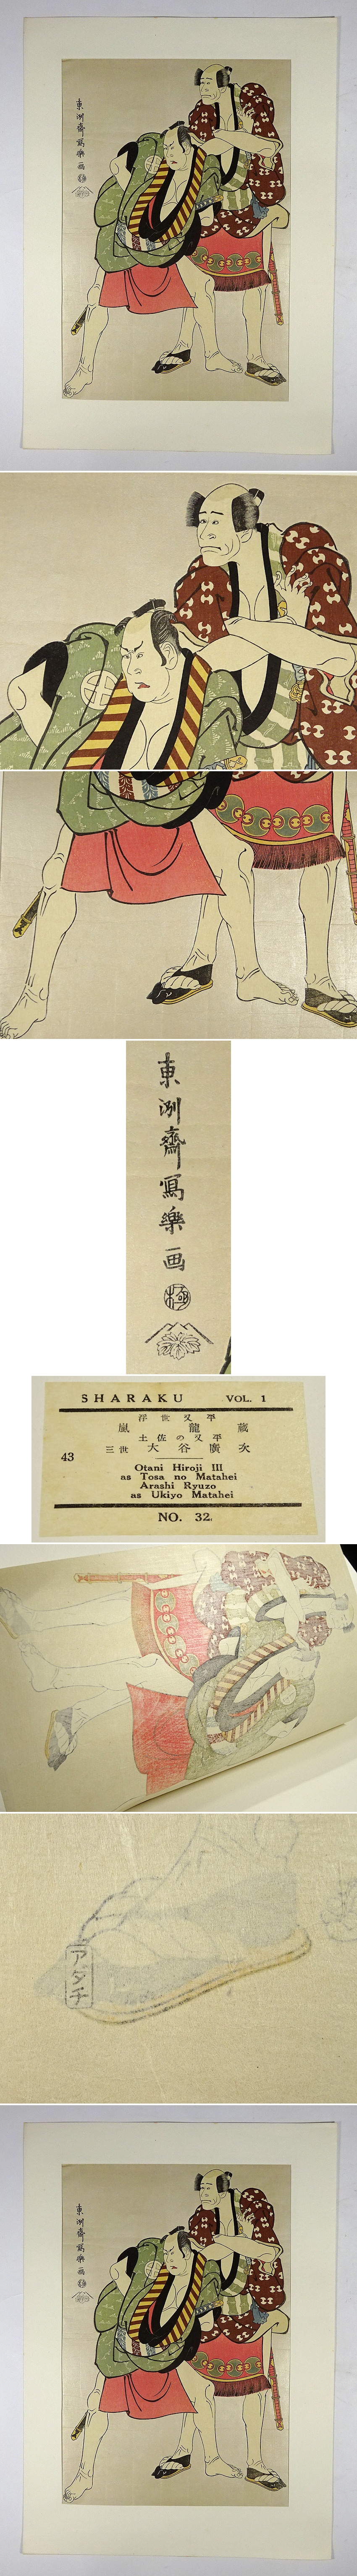 東
洲
齋
寫
樂
画
極
東
洲
齋
寫
樂
画
極
SHARAKU VOL. 1
浮世又平
嵐 龍藏
土佐の又平
三世 大谷廣次
43
Otani Hiroji III
as Tosa no Matahei
Arashi Ryuzo
as Ukiyo Matahei
NO. 32.
アダチ
東
洲
齋
寫
樂
画
極